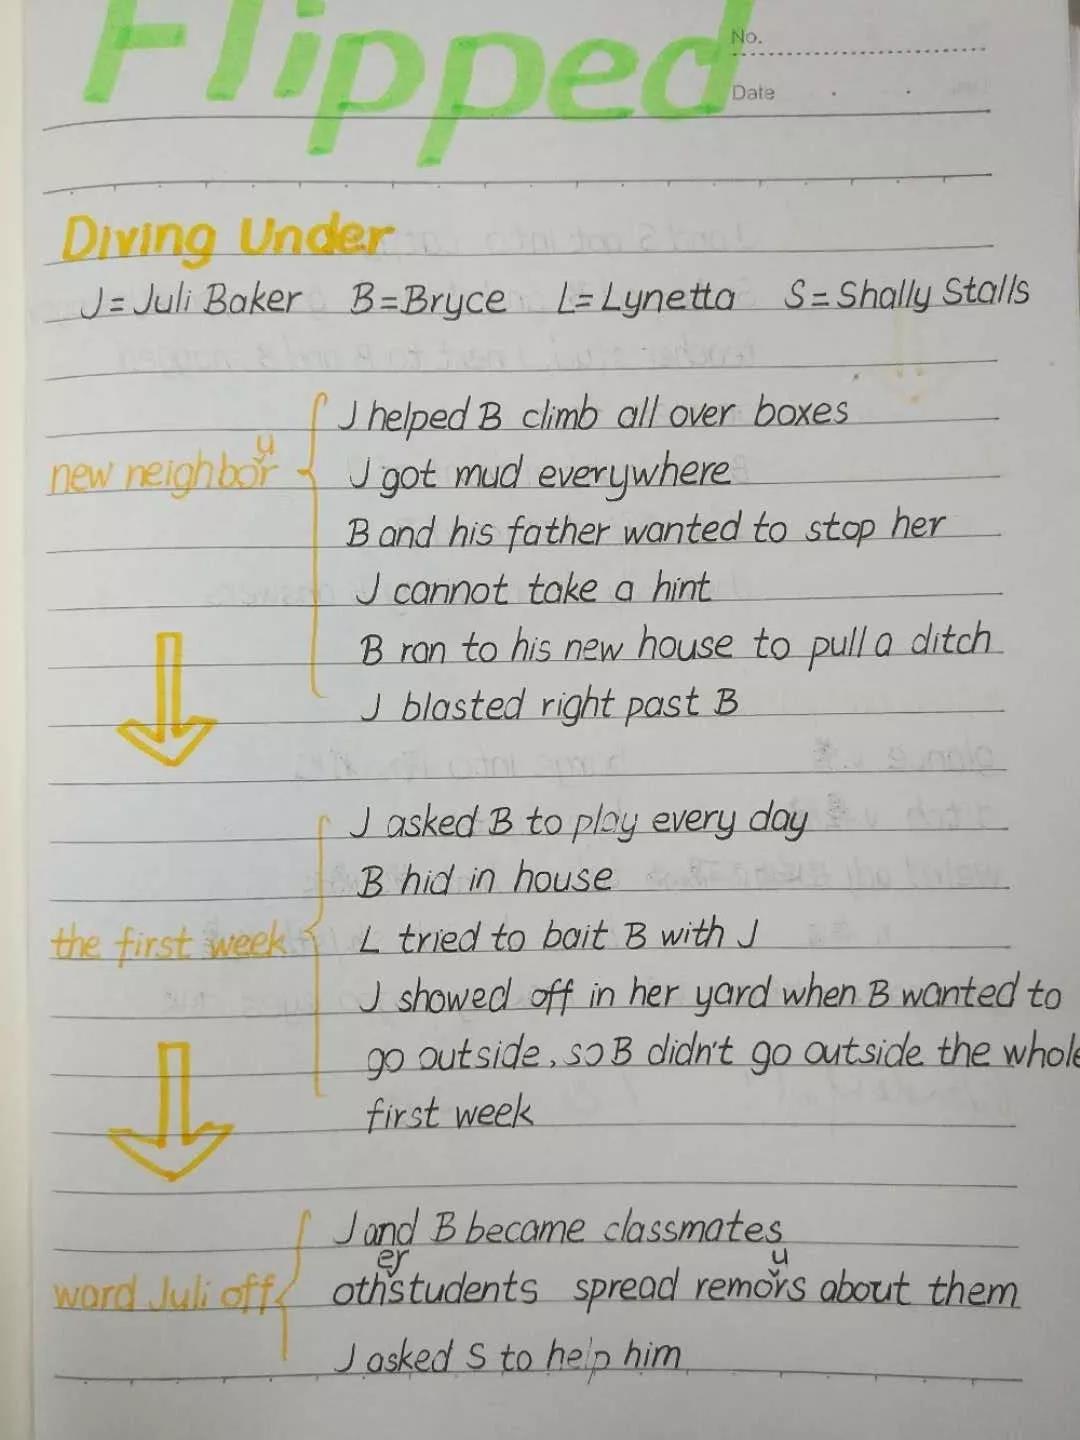 Flipped
No.
Date
Diving Under
J=Juli Baker B=Bryce L=Lynetta S=Shally Stalls
J helped B climb all over boxes
new neighbour
J got mud everywhere
B and his father wanted to stop her
J cannot take a hint
B ran to his new house to pull a ditch
J blasted right past B
J asked B to play every day
B hid in house
the first week
L tried to bait B with J
J showed off in her yard when B wanted to
go outside, so B didn't go outside the whole
first week
J and B became classmates
ward Juli off
other students spread remours about them
J asked S to help him